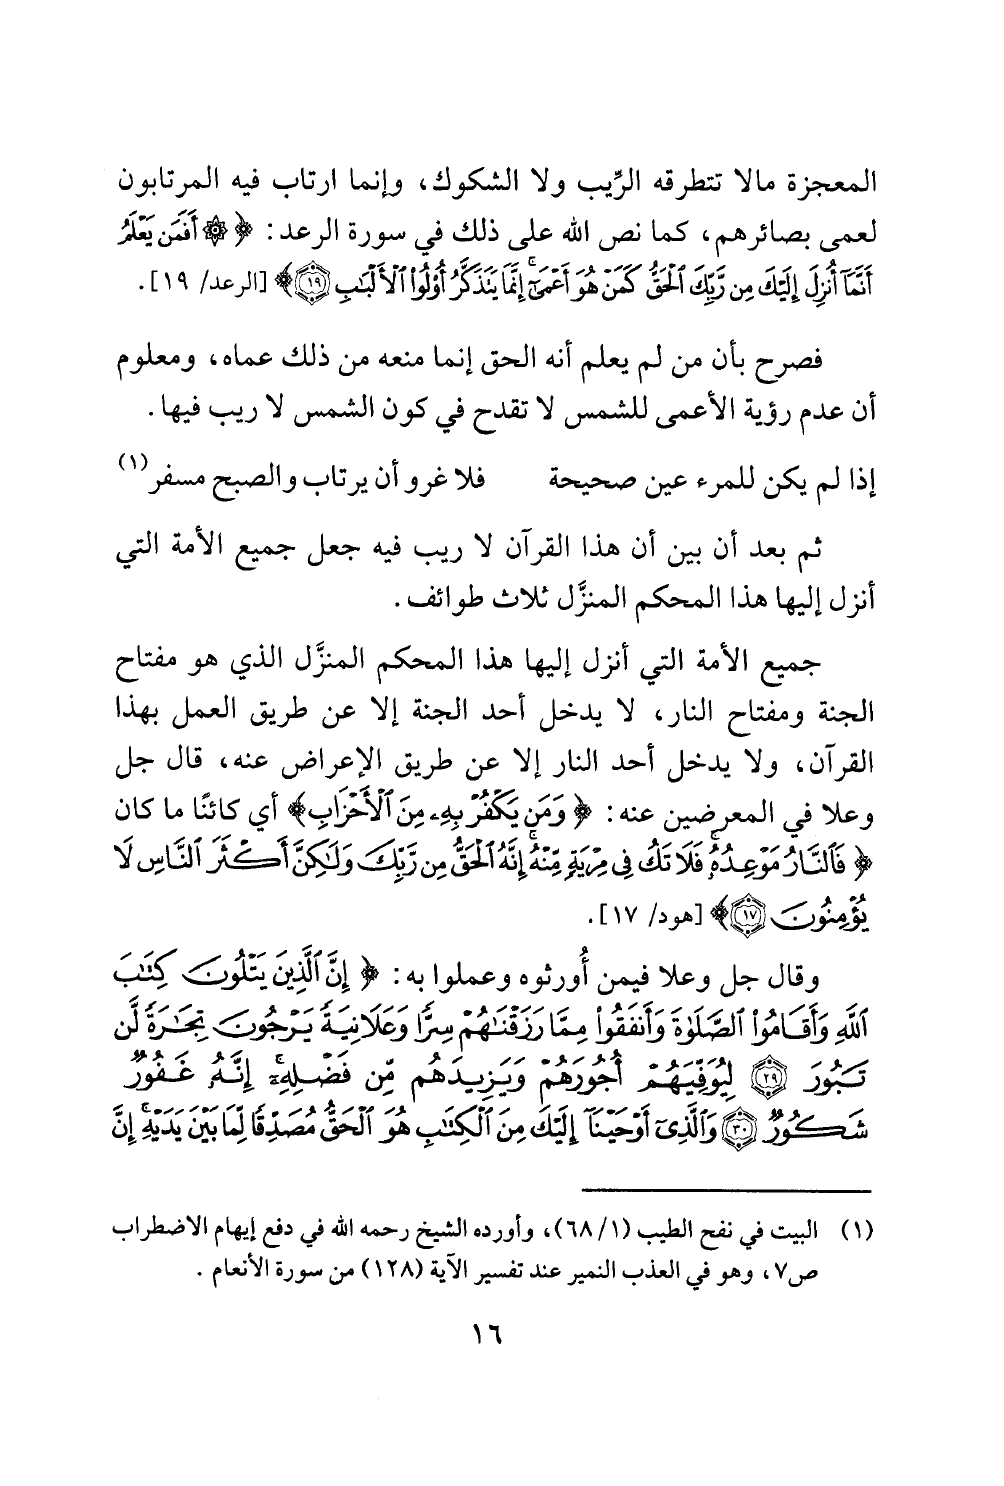 المعجزة مالا تتطرقه الرِّيب ولا الشكوك، وإنما ارتاب فيه المرتابون
لعمى بصائرهم، كما نص الله على ذلك في سورة الرعد: ﴿ ۞ أَفَمَن يَعْلَمُ
أَنَّمَآ أُنزِلَ إِلَيْكَ مِن رَّبِّكَ ٱلْحَقُّ كَمَنْ هُوَ أَعْمَىٰٓ ۚ إِنَّمَا يَتَذَكَّرُ أُوْلُواْ ٱلْأَلْبَٰبِ ١٩﴾ [الرعد/ ١٩].
فصرح بأن من لم يعلم أنه الحق إنما منعه من ذلك عماه، ومعلوم
أن عدم رؤية الأعمى للشمس لا تقدح في كون الشمس لا ريب فيها.
إذا لم يكن للمرء عين صحيحة فلا غرو أن يرتاب والصبح مسفر(١)
ثم بعد أن بين أن هذا القرآن لا ريب فيه جعل جميع الأمة التي
أنزل إليها هذا المحكم المنزَّل ثلاث طوائف.
جميع الأمة التي أنزل إليها هذا المحكم المنزَّل الذي هو مفتاح
الجنة ومفتاح النار، لا يدخل أحد الجنة إلا عن طريق العمل بهذا
القرآن، ولا يدخل أحد النار إلا عن طريق الإعراض عنه، قال جل
وعلا في المعرضين عنه: ﴿ وَمَن يَكْفُرْ بِهِۦ مِنَ ٱلْأَحْزَابِ﴾ أي كائنًا ما كان
﴿ فَٱلنَّارُ مَوْعِدُهُۥ ۚ فَلَا تَكُ فِى مِرْيَةٍ مِّنْهُ ۚ إِنَّهُ ٱلْحَقُّ مِن رَّبِّكَ وَلَٰكِنَّ أَكْثَرَ ٱلنَّاسِ لَا
يُؤْمِنُونَ ١٧﴾ [هود/ ١٧].
وقال جل وعلا فيمن أُورثوه وعملوا به: ﴿ إِنَّ ٱلَّذِينَ يَتْلُونَ كِتَٰبَ
ٱللَّهِ وَأَقَامُواْ ٱلصَّلَوٰةَ وَأَنفَقُواْ مِمَّا رَزَقْنَٰهُمْ سِرًّا وَعَلَانِيَةً يَرْجُونَ تِجَٰرَةً لَّن
تَبُورَ ٢٩ لِيُوَفِّيَهُمْ أُجُورَهُمْ وَيَزِيدَهُم مِّن فَضْلِهِۦٓ ۚ إِنَّهُۥ غَفُورٌ
شَكُورٌ ٣٠ وَٱلَّذِىٓ أَوْحَيْنَآ إِلَيْكَ مِنَ ٱلْكِتَٰبِ هُوَ ٱلْحَقُّ مُصَدِّقًا لِّمَا بَيْنَ يَدَيْهِ ۗ إِنَّ
(١) البيت في نفح الطيب (١/ ٦٨)، وأورده الشيخ رحمه الله في دفع إيهام الاضطراب
ص٧، وهو في العذب النمير عند تفسير الآية (١٢٨) من سورة الأنعام .
١٦